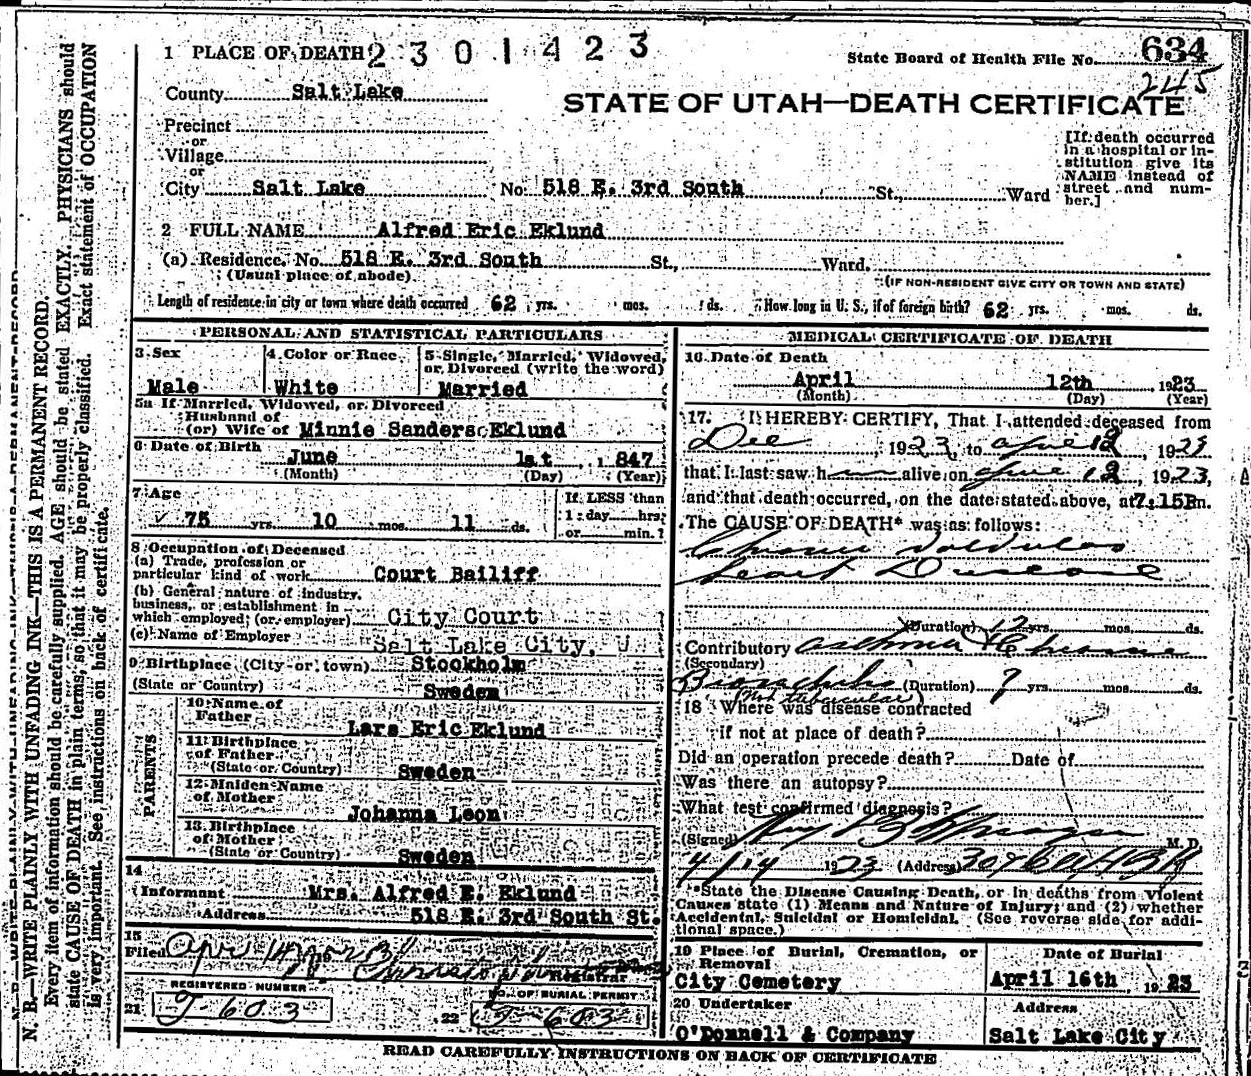 1 PLACE OF DEATH 2 3 0 1 4 2 3
State Board of Health File No. 634
245
County Salt Lake
STATE OF UTAH—DEATH CERTIFICATE
Precinct
or
Village
or
City Salt Lake No. 518 E. 3rd South St., Ward
[If death occurred
in a hospital or in-
stitution give its
NAME instead of
street and num-
ber.]
2 FULL NAME Alfred Eric Eklund
(a) Residence. No. 518 E. 3rd South St., Ward.
(Usual place of abode)
(IF NON-RESIDENT GIVE CITY OR TOWN AND STATE)
Length of residence in city or town where death occurred 62 yrs. mos. ds. How long in U. S., if of foreign birth? 62 yrs. mos. ds.
PERSONAL AND STATISTICAL PARTICULARS
3 Sex
Male
4 Color or Race
White
5 Single, Married, Widowed,
or Divorced (write the word)
Married
5a If Married, Widowed, or Divorced
Husband of
(or) Wife of Minnie Sanders Eklund
6 Date of Birth
June 1st, 1847
(Month) (Day) (Year)
7 Age
75 yrs. 10 mos. 11 ds.
If LESS than
1 day hrs.
or min.?
8 Occupation of Deceased
(a) Trade, profession or
particular kind of work Court Bailiff
(b) General nature of industry,
business, or establishment in
which employed (or employer) City Court
(c) Name of Employer Salt Lake City, U
9 Birthplace (City or town) Stockholm
(State or Country) Sweden
PARENTS
10 Name of
Father
Lars Eric Eklund
11 Birthplace
of Father
(State or Country) Sweden
12 Maiden Name
of Mother
Johanna Leon
13 Birthplace
of Mother
(State or Country) Sweden
14
Informant Mrs. Alfred E. Eklund
Address 518 E. 3rd South St.
15
Filed Apr 14 1923
Registrar
REGISTERED NUMBER
21 J-603
NO. OF BURIAL PERMIT
22 J-603
MEDICAL CERTIFICATE OF DEATH
16 Date of Death
April 12th, 1923
(Month) (Day) (Year)
17. I HEREBY CERTIFY, That I attended deceased from
Dec, 1923, to April 12, 1923
that I last saw h alive on April 12, 1923,
and that death occurred, on the date stated above, at 7:15P m.
The CAUSE OF DEATH* was as follows:
Chronic valvular
heart Disease
(Duration) 12 yrs. mos. ds.
Contributory asthma & Chronic
(Secondary)
Bronchitis (Duration) ? yrs. mos. ds.
(Not tubercular)
18 Where was disease contracted
if not at place of death?
Did an operation precede death? Date of
Was there an autopsy?
What test confirmed diagnosis?
(Signed) M. D.
4/14 1923 (Address)
*State the Disease Causing Death, or in deaths from Violent
Causes state (1) Means and Nature of Injury; and (2) whether
Accidental, Suicidal or Homicidal. (See reverse side for addi-
tional space.)
19 Place of Burial, Cremation, or
Removal
City Cemetery
Date of Burial
April 16th, 1923
20 Undertaker
O'Donnell & Company
Address
Salt Lake City
READ CAREFULLY INSTRUCTIONS ON BACK OF CERTIFICATE
N. B.—WRITE PLAINLY WITH UNFADING INK—THIS IS A PERMANENT RECORD.
Every item of information should be carefully supplied. AGE should be stated EXACTLY. PHYSICIANS should
state CAUSE OF DEATH in plain terms, so that it may be properly classified. Exact statement of OCCUPATION
is very important. See instructions on back of certificate.